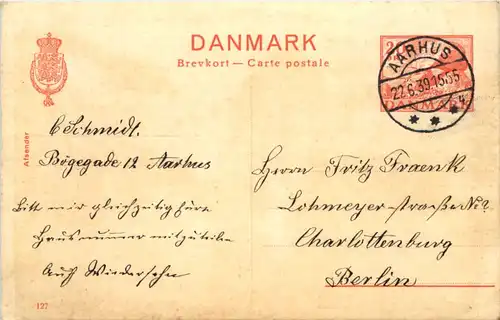 DANMARK
Brevkort — Carte postale
AARHUS
22.6.39.15
DANMARK
Afsender
C Schmidt.
Bögegade 12 Aarhus
Bitt mir gleichzeitig Ihre
Hausnummer mitzuteilen
Auf Wiedersehn
Herrn Fritz Fraenk
Lohmeyer-straße No 2
Charlottenburg
Berlin
127